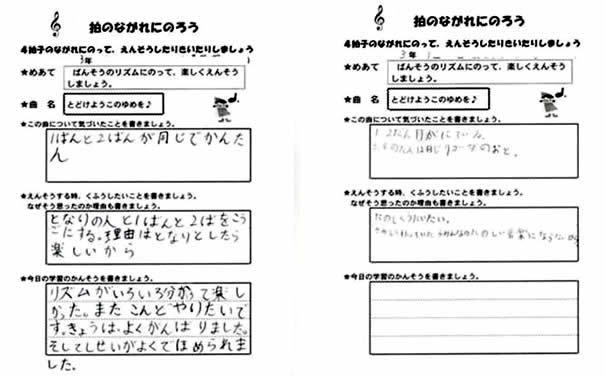 拍のながれにのろう
4拍子のながれにのって、えんそうしたりきいたりしましょう
3年
★めあて ばんそうのリズムにのって、楽しくえんそう
しましょう。
★曲 名 とどけようこのゆめを♪
★この曲について気づいたことを書きましょう。
1ばんと2ばんが同じでかんた
ん
★えんそうする時、くふうしたいことを書きましょう。
なぜそう思ったのか理由も書きましょう。
となりの人と1ばんと2ばをこう
ごにする。理由はとなりとしたら
楽しいから
★今日の学習のかんそうを書きましょう。
リズムがいろいろ分かって楽し
かった。またこんどやりたいで
す。きょうは、よくかんばりました。
そしてしせいがよくてほめられま
した。
拍のながれにのろう
4拍子のながれにのって、えんそうしたりきいたりしましょう
3年
★めあて ばんそうのリズムにのって、楽しくえんそう
しましょう。
★曲 名 とどけようこのゆめを♪
★この曲について気づいたことを書きましょう。
★えんそうする時、くふうしたいことを書きましょう。
なぜそう思ったのか理由も書きましょう。
たのしくうたいたい。
★今日の学習のかんそうを書きましょう。